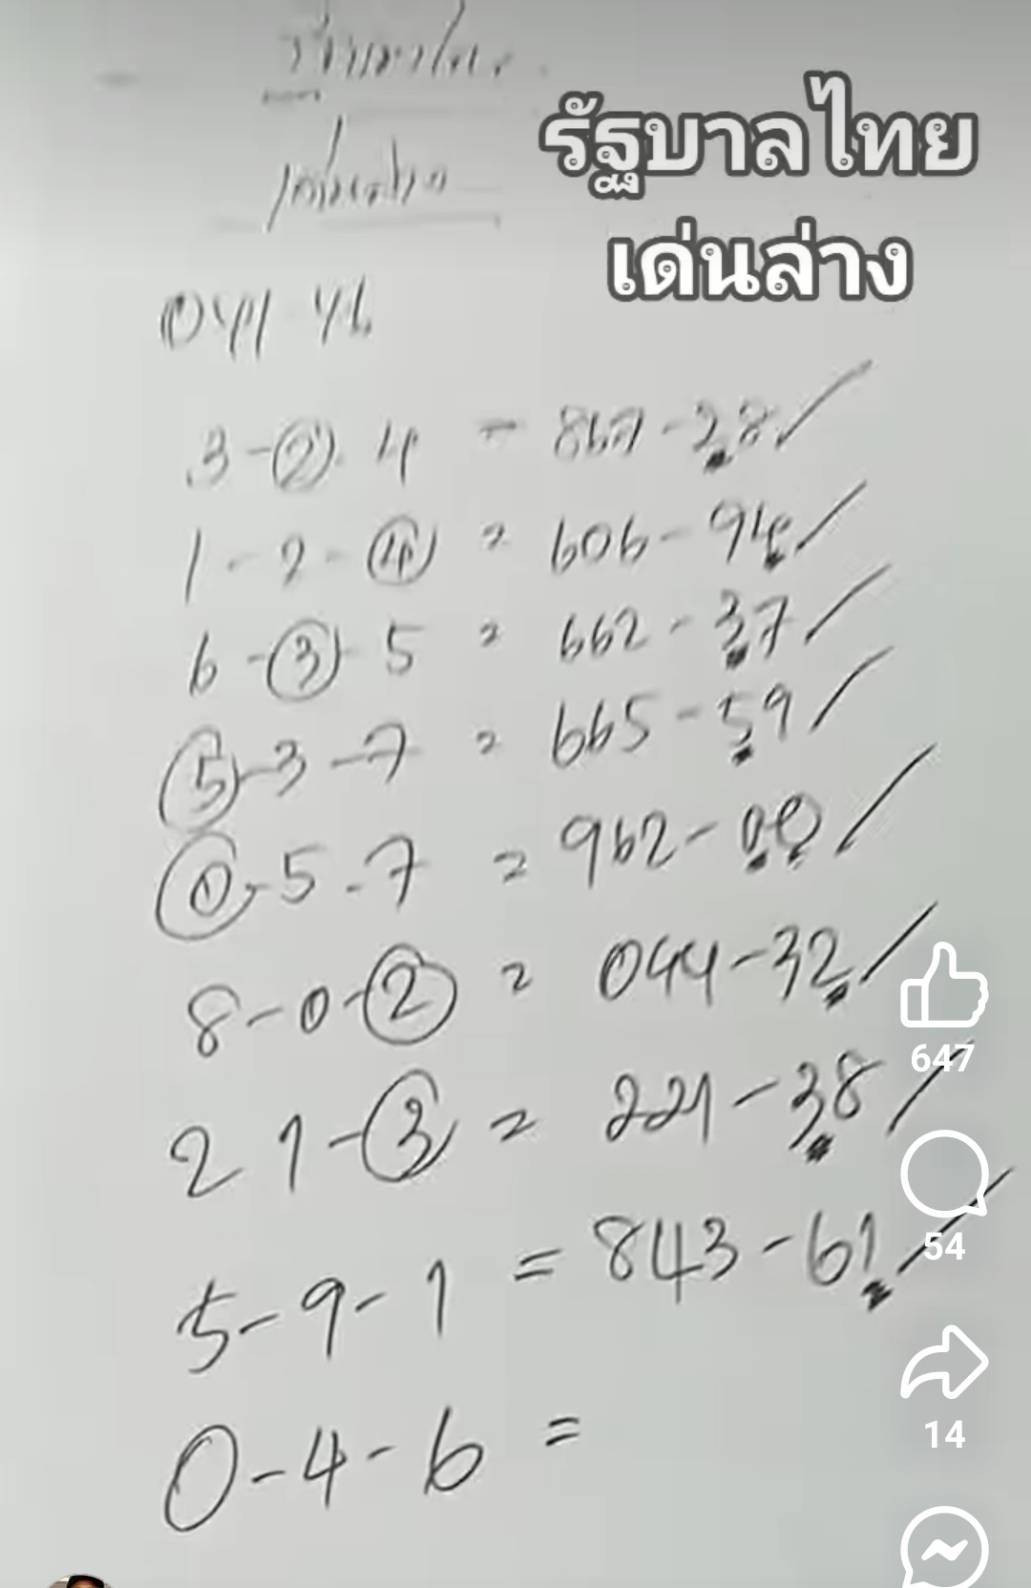 รัฐบาลไทย
เด่นล่าง
3-2-4 = 867-28
1-2-4 = 606-94
6-3-5 = 662-37
5-3-7 = 665-59
0-5-7 = 962-00
8-0-2 = 044-32
2 1-3 = 221-38
647
5-9-1 = 843-61
54
0-4-6 =
14